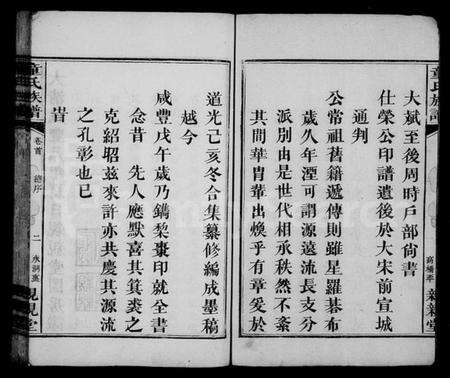 大斌至後周時戶部尙書
仕榮公印譜遺後於大宋前宣城
通判
公常祖舊籍遞傳則雖星羅棊布
歲久年湮可謂源遠流長支分
派別由是世代相承秩然不紊
其間華胄華出煥乎有章爰於
道光己亥冬合集纂修編成墨稿
越今
咸豐戊午歲乃鐫棃棗印就全書
念昔先人應默喜其箕裘之
克紹昭茲來許亦共慶其源流
之孔彰也已
旹
童氏族譜
卷首
二